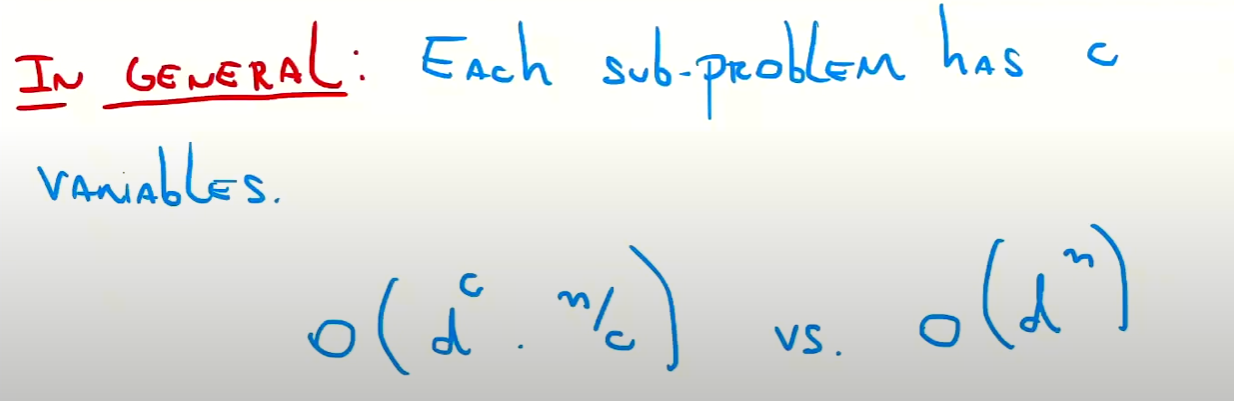 IN GENERAL: EAch sub-PROblEM hAS c
VARIAblES.
O(d^c . n/c) vs. O(d^n)